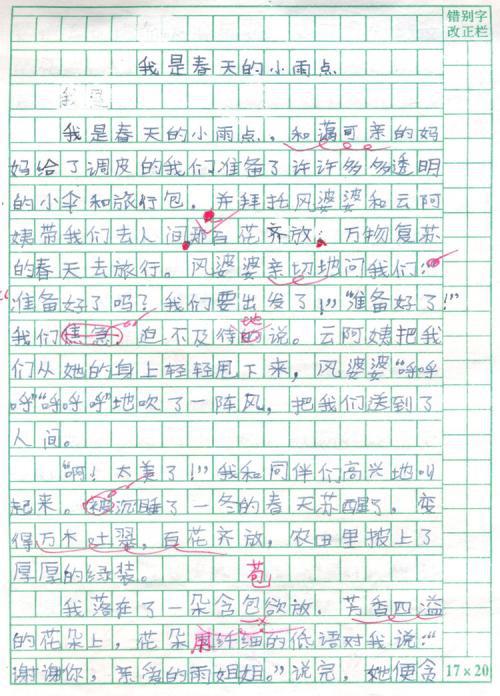 错别字
改正栏
我是春天的小雨点
我是春天的小雨点，和蔼可亲的妈
妈给了调皮的我们准备了许许多多透明
的小伞和旅行包，并拜托风婆婆和云阿
姨带我们去人间那百花齐放，万物复苏
的春天去旅行。风婆婆亲切地问我们：
“准备好了吗？我们要出发了！”“准备好了！”
我们焦急，迫不及待地说。云阿姨把我
们从她的身上轻轻甩下来，风婆婆“呼呼
呼”“呼呼呼”地吹了一阵风，把我们送到了
人间。
“啊！太美了！”我和同伴们高兴地叫
起来。被沉睡了一冬的春天苏醒了，变
得万木吐翠，百花齐放，农田里披上了
厚厚的绿装。
苞
我落在了一朵含包欲放，芳香四溢
的花朵上，花朵用纤细的低语对我说：“
谢谢你，亲爱的雨姐姐。”说完，她便贪
17×20